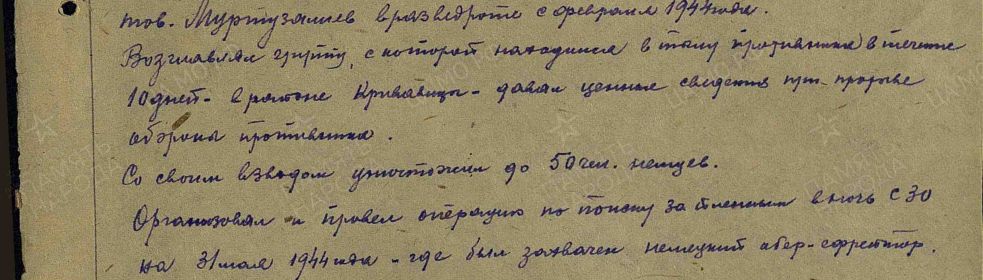 тов. Муртузалиев в разведроте с февраля 1944 года.
Возглавлял группу, с которой находился в тылу противника в течение
10 дней - в районе Кривавицы - давал ценные сведения при прорыве
обороны противника.
Со своим взводом уничтожил до 50 чел. немцев.
Организовал и провел операцию по поиску за пленным в ночь с 30
на 31 мая 1944 года - где был захвачен немецкий обер-ефрейтор.